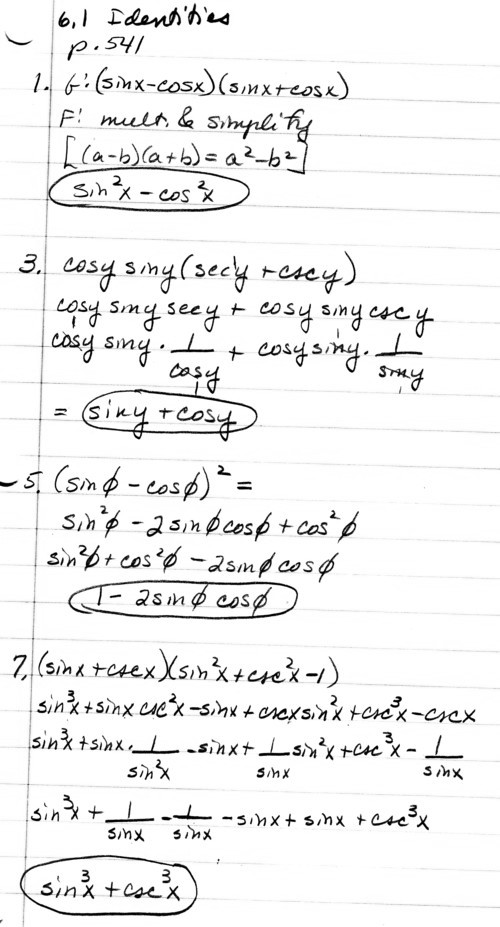 6.1 Identities
p. 541
1. G: (sinx-cosx)(sinx+cosx)
F: mult. & simplify
[(a-b)(a+b) = a²-b²]
sin²x - cos²x
3. cosy siny (secy + cscy)
cosy siny secy + cosy siny csc y
cosy siny · 1/cosy + cosy siny · 1/siny
= siny + cosy
5. (sinϕ - cosϕ)² =
sin²ϕ - 2sinϕcosϕ + cos²ϕ
sin²ϕ + cos²ϕ - 2sinϕ cosϕ
1 - 2sinϕ cosϕ
7. (sinx + cscx)(sin²x + csc²x - 1)
sin³x + sinx csc²x - sinx + cscx sin²x + csc³x - cscx
sin³x + sinx · 1/sin²x - sinx + 1/sinx sin²x + csc³x - 1/sinx
sin³x + 1/sinx - 1/sinx - sinx + sinx + csc³x
sin³x + csc³x